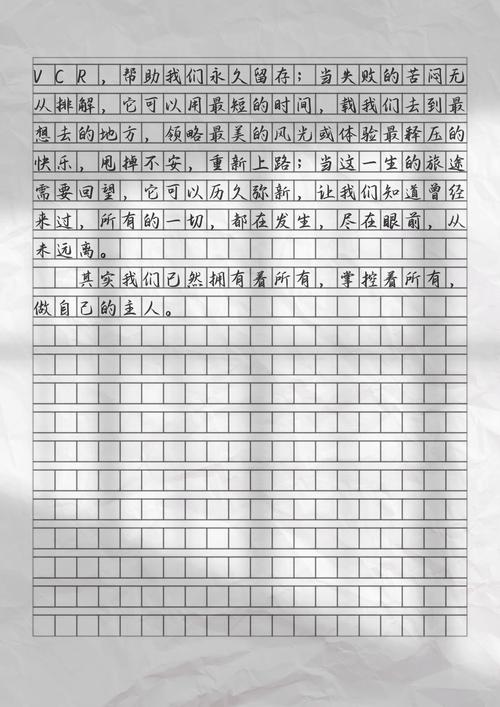 VCR，帮助我们永久留存；当失败的苦闷无
从排解，它可以用最短的时间，载我们去到最
想去的地方，领略最美的风光或体验最释压的
快乐，甩掉不安，重新上路；当这一生的旅途
需要回望，它可以历久弥新，让我们知道曾经
来过，所有的一切，都在发生，尽在眼前，从
未远离。
其实我们已然拥有着所有，掌控着所有，
做自己的主人。